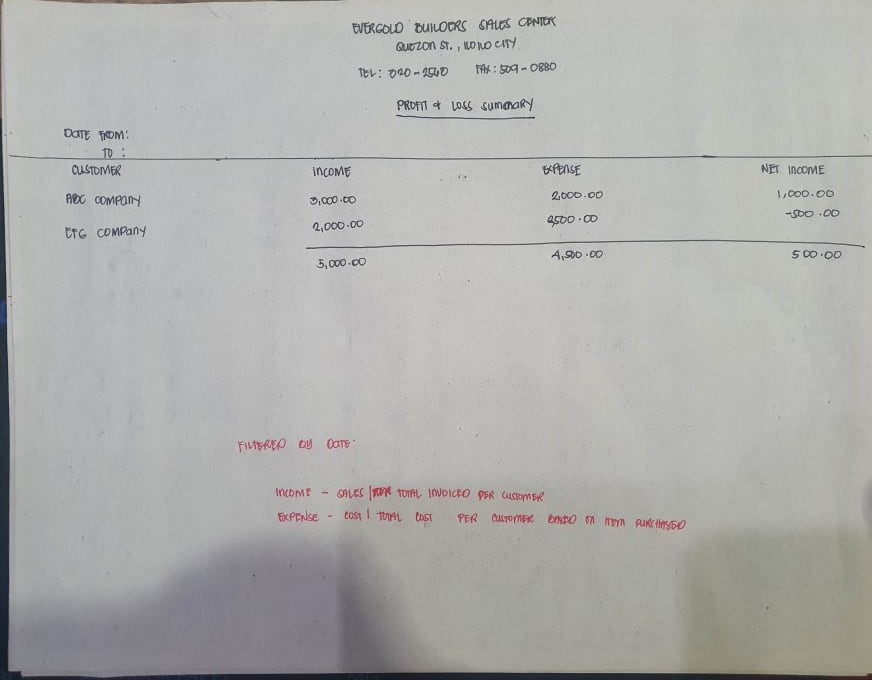 EVERGOLD BUILDERS SALES CENTER
QUEZON ST., ILOILO CITY
TEL: 020-2540 FAX: 509-0880
PROFIT & LOSS SUMMARY
DATE FROM:
TO :
CUSTOMER INCOME EXPENSE NET INCOME
ABC COMPANY 3,000.00 2,000.00 1,000.00
EFG COMPANY 2,000.00 2500.00 -500.00
5,000.00 4,500.00 500.00
FILTERED BY DATE
INCOME - SALES | TOTAL INVOICED PER CUSTOMER
EXPENSE - COST | TOTAL COST PER CUSTOMER BASED ON ITEM PURCHASED